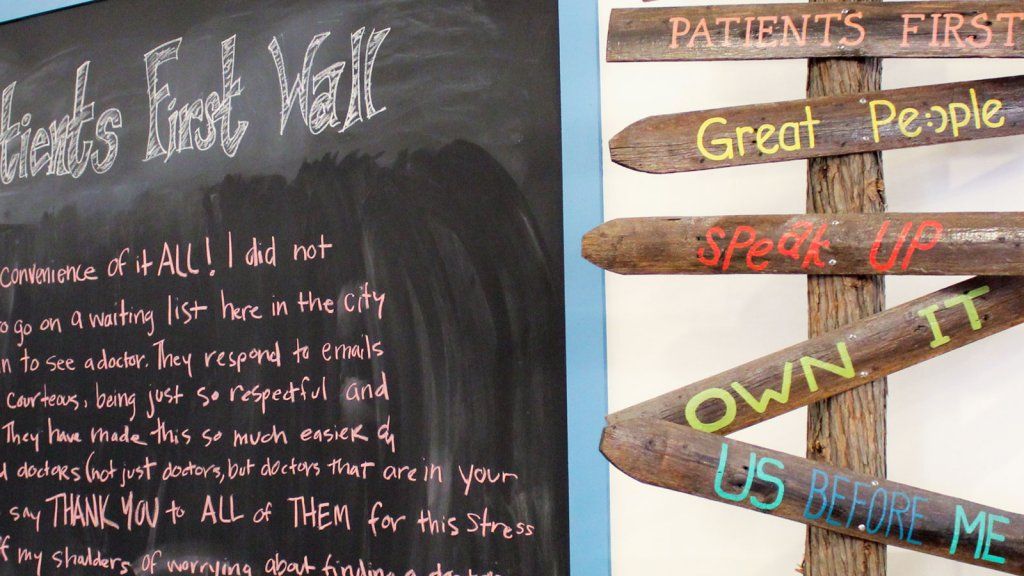 tients First Wall
convenience of it ALL! I did not
go on a waiting list here in the city
to see a doctor. They respond to emails
courteous, being just so respectful and
They have made this so much easier
doctors (not just doctors, but doctors that are in your
say THANK YOU to ALL of THEM for this stress
my shoulders of worrying about finding a
PATIENTS FIRST
Great Pe:)ple
SPeak UP
OWN IT
US BEFORE ME